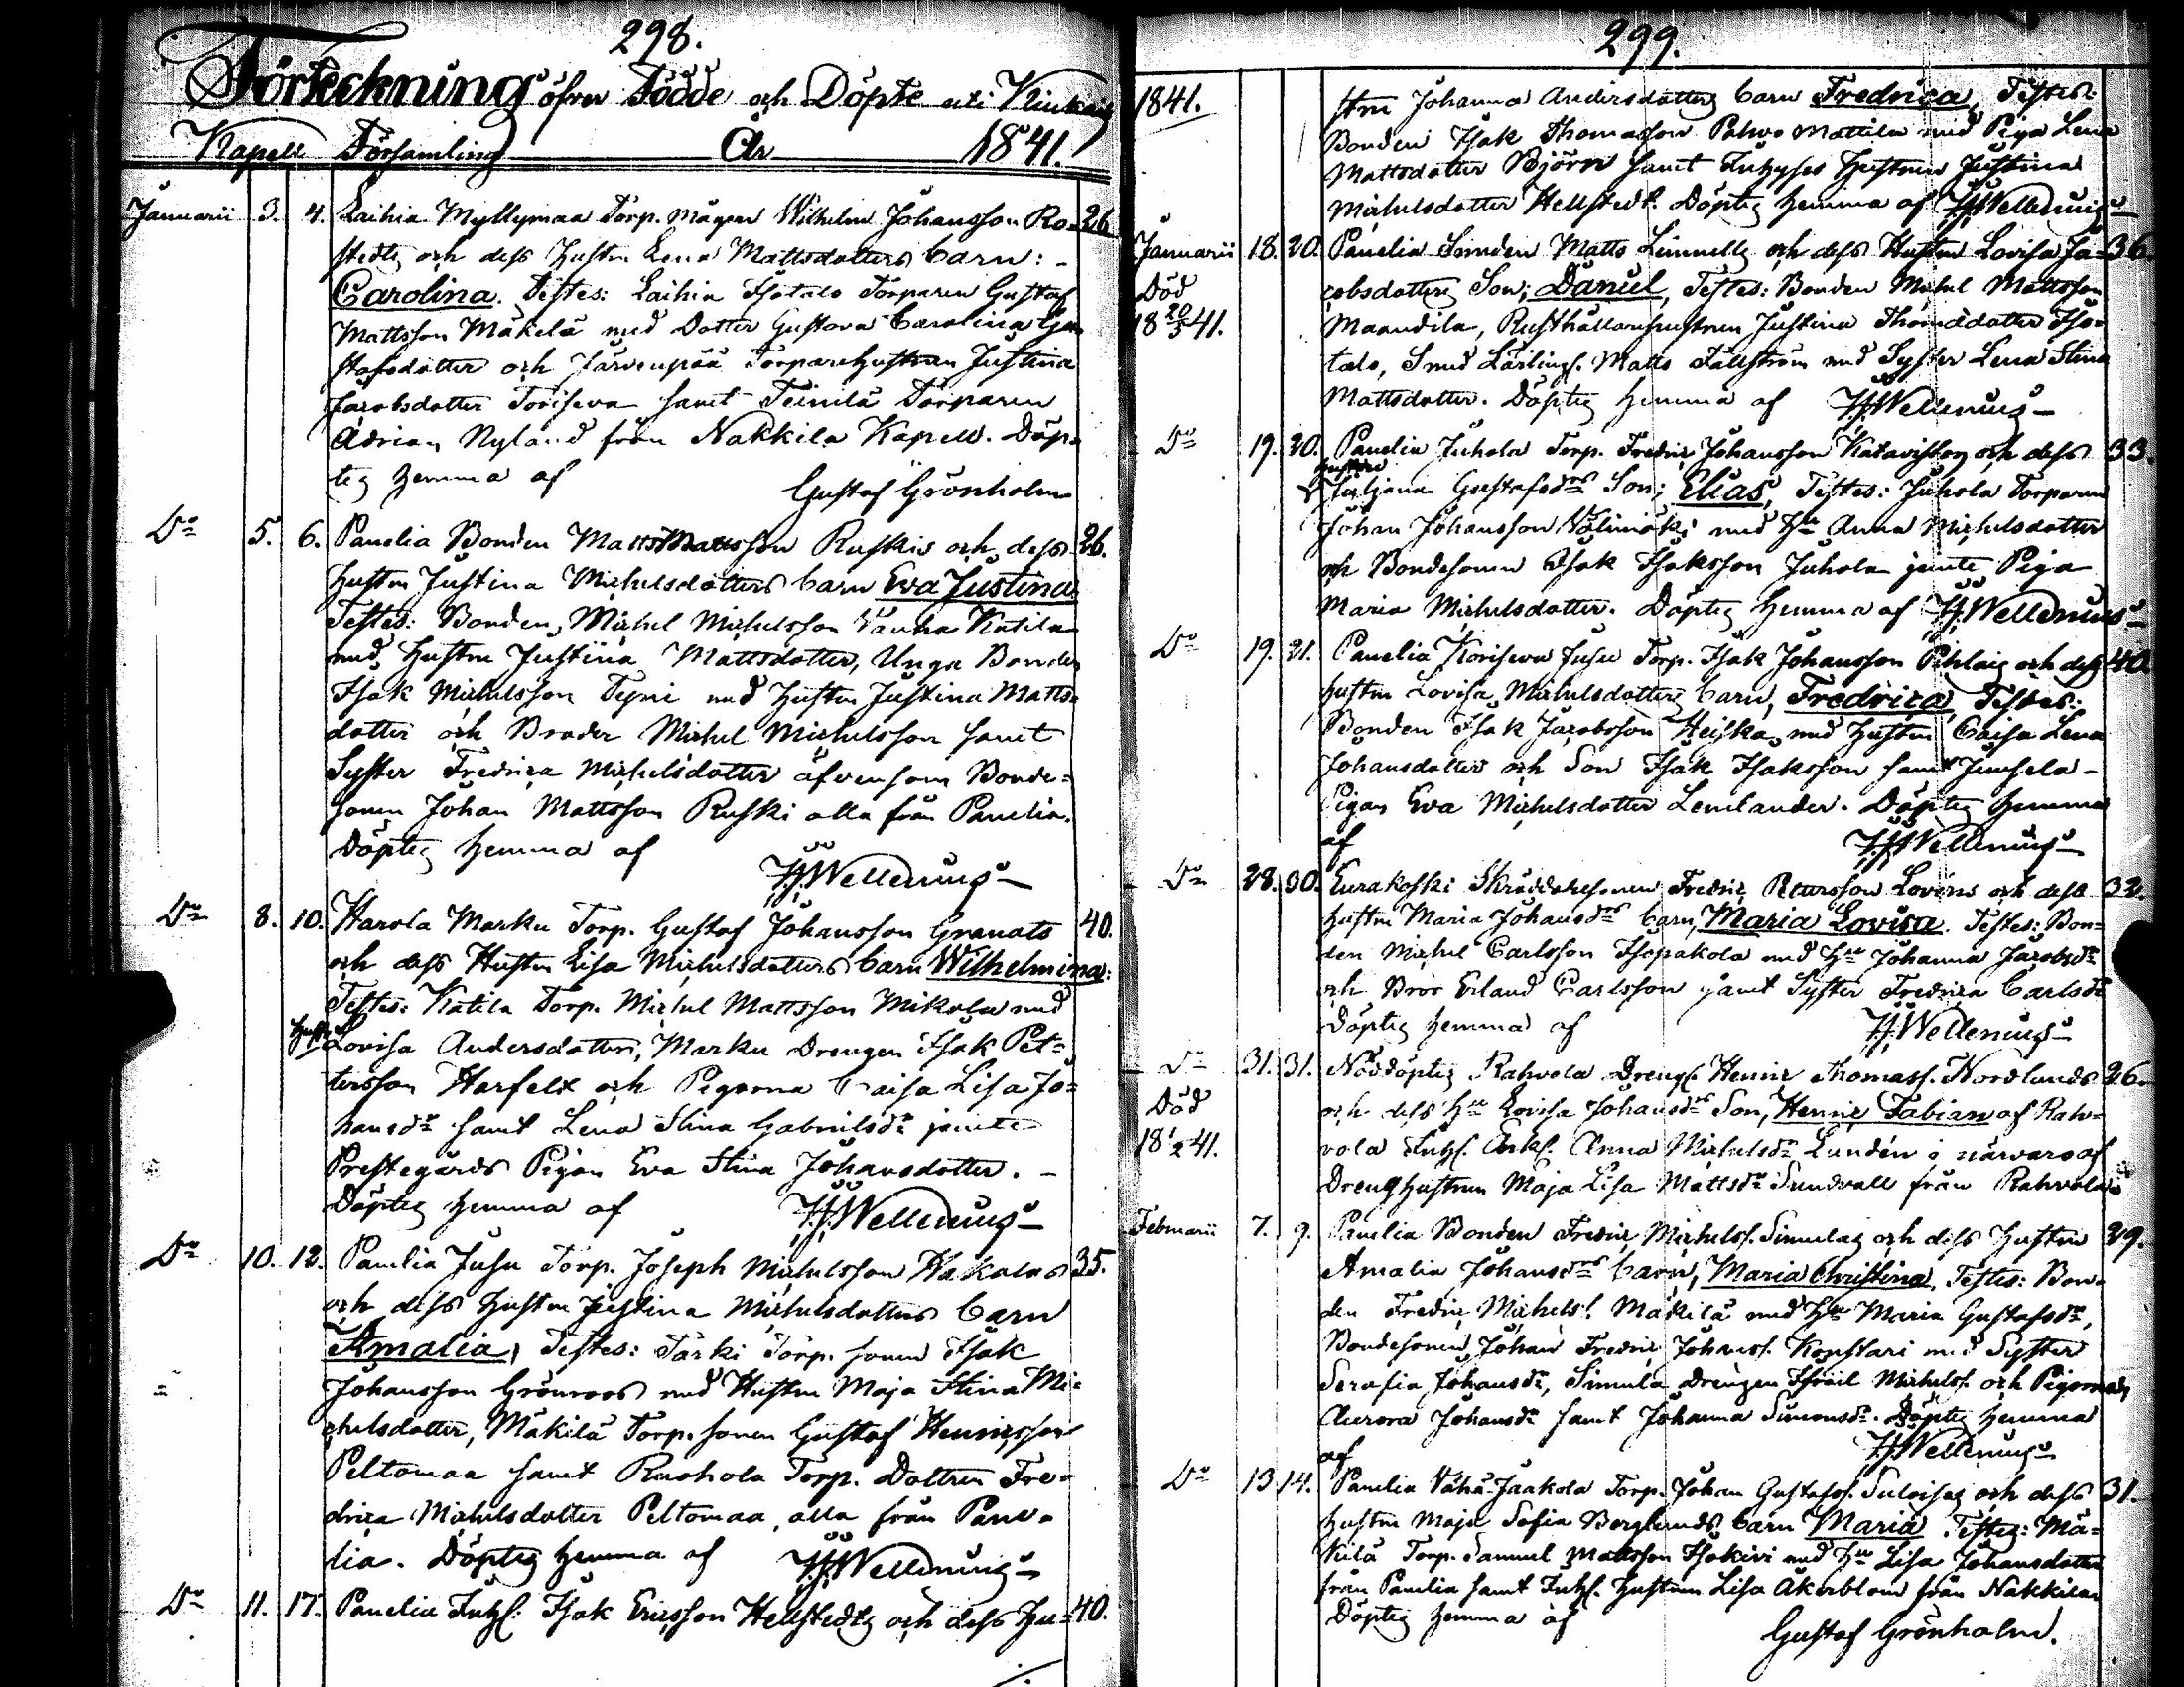 298.
Förteckning öfver Födde och Döpte uti
Kapell Församling År 1841.
Januarii 3. 4. Laihia Myllymaa Torp. mågen Wilhelm Johansson Ro- 26
stedts och dess Hustru Lena Mattsdotters barn: -
Carolina. Testes: Laihia Isotalo Torparen Gustaf
Mattsson Mäkelä med Dotter Gustava Carolina Gu
stafsdotter och Järvenpää Torparehustrun Justina
Jacobsdotter Toriseva samt Teinilä Torparen
Adrian Nyland från Nakkila Kapell. Döp-
tes hemma af Gustaf Grönholm
Do 5. 6. Panelia Bonden Matts Mattsson Ruskis och dess 26.
Hustru Justina Michelsdotters barn Eva Justina
Testes: Bonden Michel Michelsson Vanha Katila
med Hustru Justina Mattsdotter, Unga Bonden
Isak Michelsson Teyni med Hustru Justina Matts-
dotter och Broder Michel Michelsson samt
Syster Fredrica Michelsdotter äfvensom Bonde-
sonen Johan Mattsson Ruski alla från Panelia.
Döptes hemma af H.J. Wellenius
Do 8. 10. Harola Marku Torp. Gustaf Johansson Granats 40.
och dess Hustru Lisa Michelsdotters barn Wilhelmina:
Testes: Katila Torp. Michel Mattsson Mikola med
Hustru Lovisa Andersdotter, Marku Drengen Isak Pet-
tersson Harfelt och Pigorna Caisa Lisa Jo-
hansdr samt Lena Stina Gabrielsdr jemte
Prestegårds Pigan Eva Stina Johansdotter. -
Döptes hemma af H.J. Wellenius
Do 10. 12. Panelia Jusu Torp. Joseph Michelsson Hakalas 35.
och dess Hustru Justina Michelsdotters barn
Amalia, Testes: Tarki Torp. sonen Isak
Johansson Grönroos med Hustru Maja Stina Mi-
chelsdotter, Mäkilä Torp. sonen Gustaf Henricsson
Peltomaa samt Ruohola Torp. Dottren Fre-
drica Michelsdotter Peltomaa, alla från Pane-
lia. Döptes hemma af H.J. Wellenius
Do 11. 17. Panelia Inhs: Isak Ericsson Hellstedts och dess Hu- 40.
299.
1841. stru Johanna Andersdotters barn Fredrica, Testes:
Bonden Isak Thomasson Pahvo Mattila med Piga Lena
Mattsdotter Björn samt Inhyses Hustrun Justina
Michelsdotter Hellstedt. Döptes hemma af H.J. Wellenius
Januarii 18. 20. Panelia Smeden Matts Linnells och dess Hustru Lovisa Ja- 36.
Död cobsdotters Son; Daniel, Testes: Bonden Michel Mattsson
18 20/3 41. Maandila, Rusthållarehustrun Justina Thomædotter Iso-
talo, Smed Lärlings. Matts Fällström med Syster Lena Stina
Mattsdotter. Döptes hemma af H.J. Wellenius
Do 19. 20. Panelia Juhola Torp. Fredric Johansson Katavistos och dess 33.
hustru
Juljana Gustafsdrs Son; Elias, Testes: Juhola Torparen
Johan Johansson Välimäki med Hu Anna Michelsdotter
och Bondesonen Isak Isaksson Juhola jemte Piga
Maria Michelsdotter. Döptes hemma af H.J. Wellenius
Do 19. 21. Panelia Koriseva Jusu Torp. Isak Johansson Pihlais och dess 40
hustru Lovisa Michelsdotters barn, Fredrica, Testes:
Bonden Isak Jacobsson Heiska med Hustru Caisa Lena
Johansdotter och Son Isak Isaksson samt Junsela-
Pigan Eva Michelsdotter Lemlander. Döptes hemma
af H.J. Wellenius
Do 28. 30. Eurakoski Skräddaresonen Fredric Petersson Lovens och dess 32.
Hustru Maria Johansdrs barn, Maria Lovisa. Testes: Bon-
den Michel Carlsson Isopakola med Hu Johanna Jacobsdr
och Bror Erland Carlsson jämt Syster Fredrica Carlsdr
Döptes hemma af H.J. Wellenius
Do 31. 31. Nöddöptes Rahvola Drengs. Henric Thomass. Nordlunds 26.
Död och dess Hu Lovisa Johansdrs Son, Henric Fabian af Rah-
18 1/2 41. vola Inhs. Enk. Anna Michelsdr Lundén i närvaro af
Dreng hustrun Maja Lisa Mattsdr Sundvall från Rahvola
Februarii 7. 9. Panelia Bonden Fredric Michelss. Simulas och dess Hustru 29.
Amalia Johansdrs barn, Maria Christina. Testes: Bon-
den Fredric Michelss. Mäkilä med Hu Maria Gustafsdr,
Bondesonen Johan Fredric Johanss. Konstari med Syster
Serafia Johansdr, Simula Drengen Israel Michelss. och Pigorna
Aurora Johansdr samt Johanna Simonsdr. Döptes hemma
af H.J. Wellenius
Do 13 14. Panelia Vähä-Jaakola Torp. Johan Gustafss. Suloises och dess 31.
Hustru Maja Sofia Berglunds barn Maria. Testes: Mä-
kilä Torp. Samuel Mattsson Isokivi med Hu Lisa Johansdotter
från Panelia samt Inhs. Hustrun Lisa Åkerblom från Nakkila
Döptes hemma af
Gustaf Grönholm.